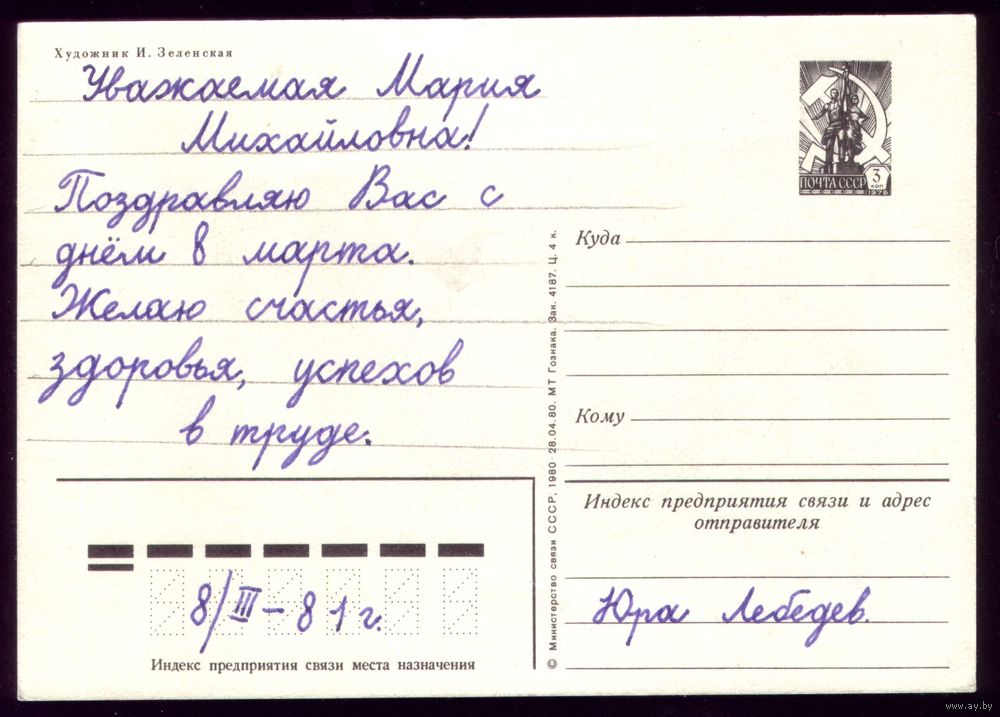 Художник И. Зеленская
Уважаемая Мария
Михайловна!
Поздравляю Вас с
днём 8 марта.
Желаю счастья,
здоровья, успехов
в труде.
8/III – 81 г.
Индекс предприятия связи места назначения
© Министерство связи СССР, 1980 28.04.80. МТ Гознака. Зак. 4187. Ц. 4 к.
ПОЧТА СССР
3
коп
1976
Куда
Кому
Индекс предприятия связи и адрес
отправителя
Юра Лебедев.
www.ay.by